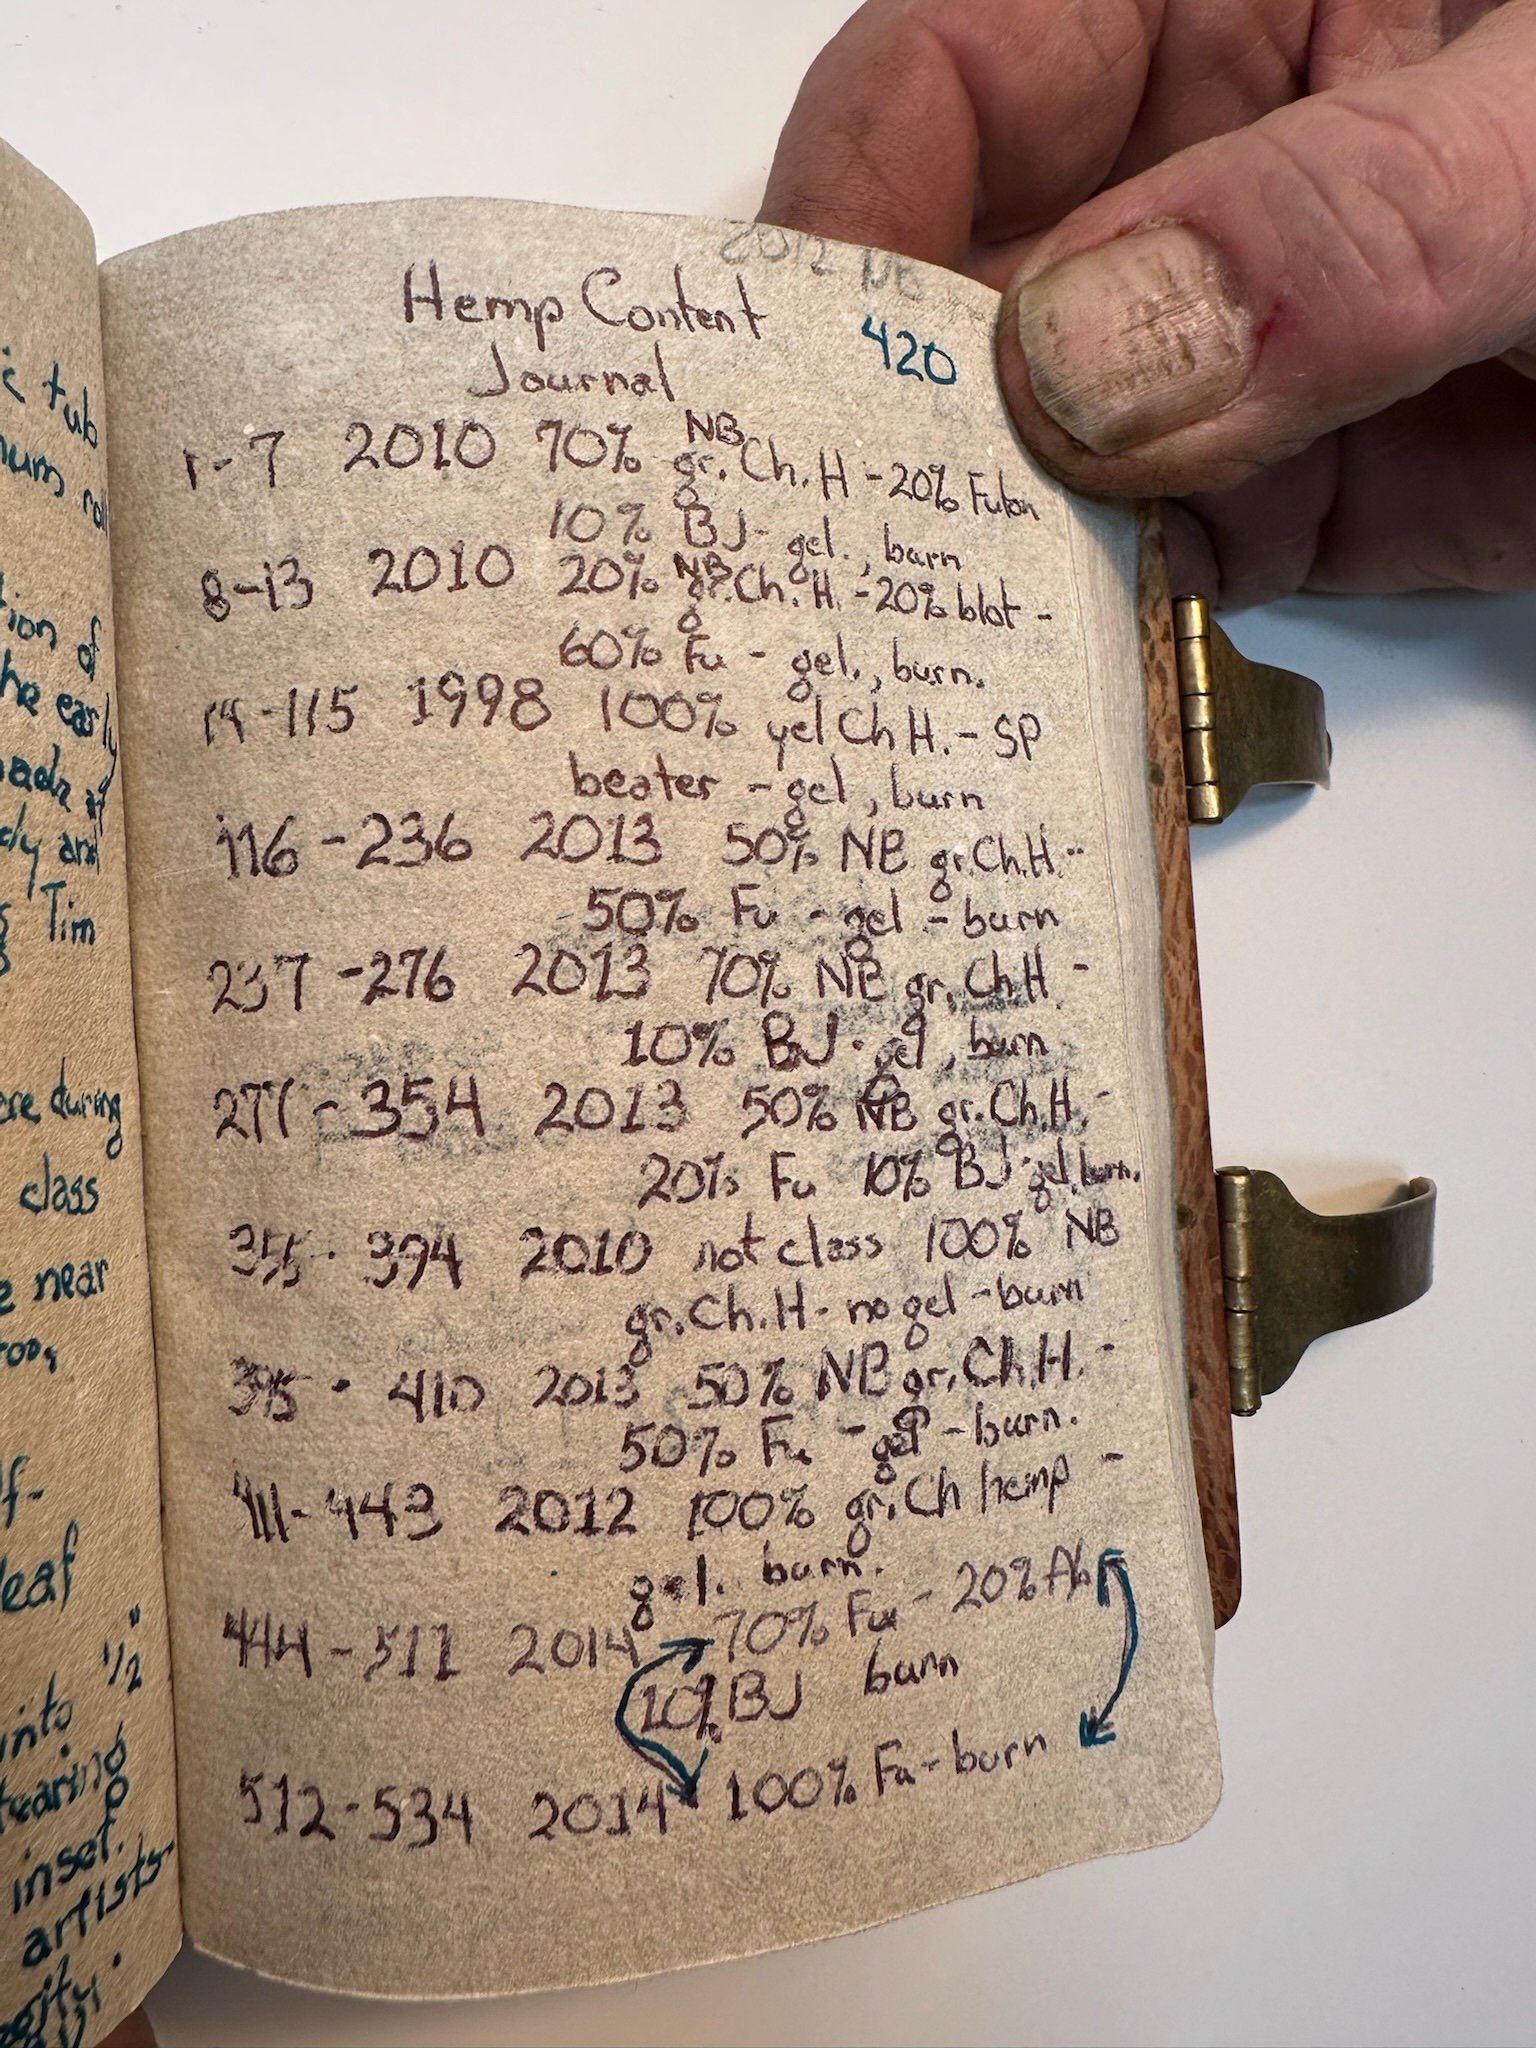 c tub
num
tion of
he early
dy and
Tim
ere during
class
e near
too,
lf-
leaf
1/2"
tearing
inset.
artists
2012
Hemp Content
420
Journal
1-7 2010 70% NB gr. Ch. H - 20% Futon
10% BJ - gel., burn
8-13 2010 20% NB gr. Ch. H. - 20% blot -
60% Fu - gel., burn.
14-115 1998 100% yel Ch H. - SP
beater - gel, burn
116-236 2013 50% NB gr. Ch. H. -
50% Fu - gel - burn
237-276 2013 70% NB gr. Ch H -
10% BJ - gel, burn
277-354 2013 50% NB gr. Ch. H. -
20% Fu 10% BJ - gel, burn.
355 - 394 2010 not class 100% NB
gr. Ch. H - no gel - burn
395 - 410 2013 50% NB gr. Ch. H. -
50% Fu - gel - burn.
411-443 2012 100% gr. Ch hemp -
gel. burn.
444-511 2014 70% Fu - 20% Ab
10% BJ burn
512-534 2014 100% Fu - burn